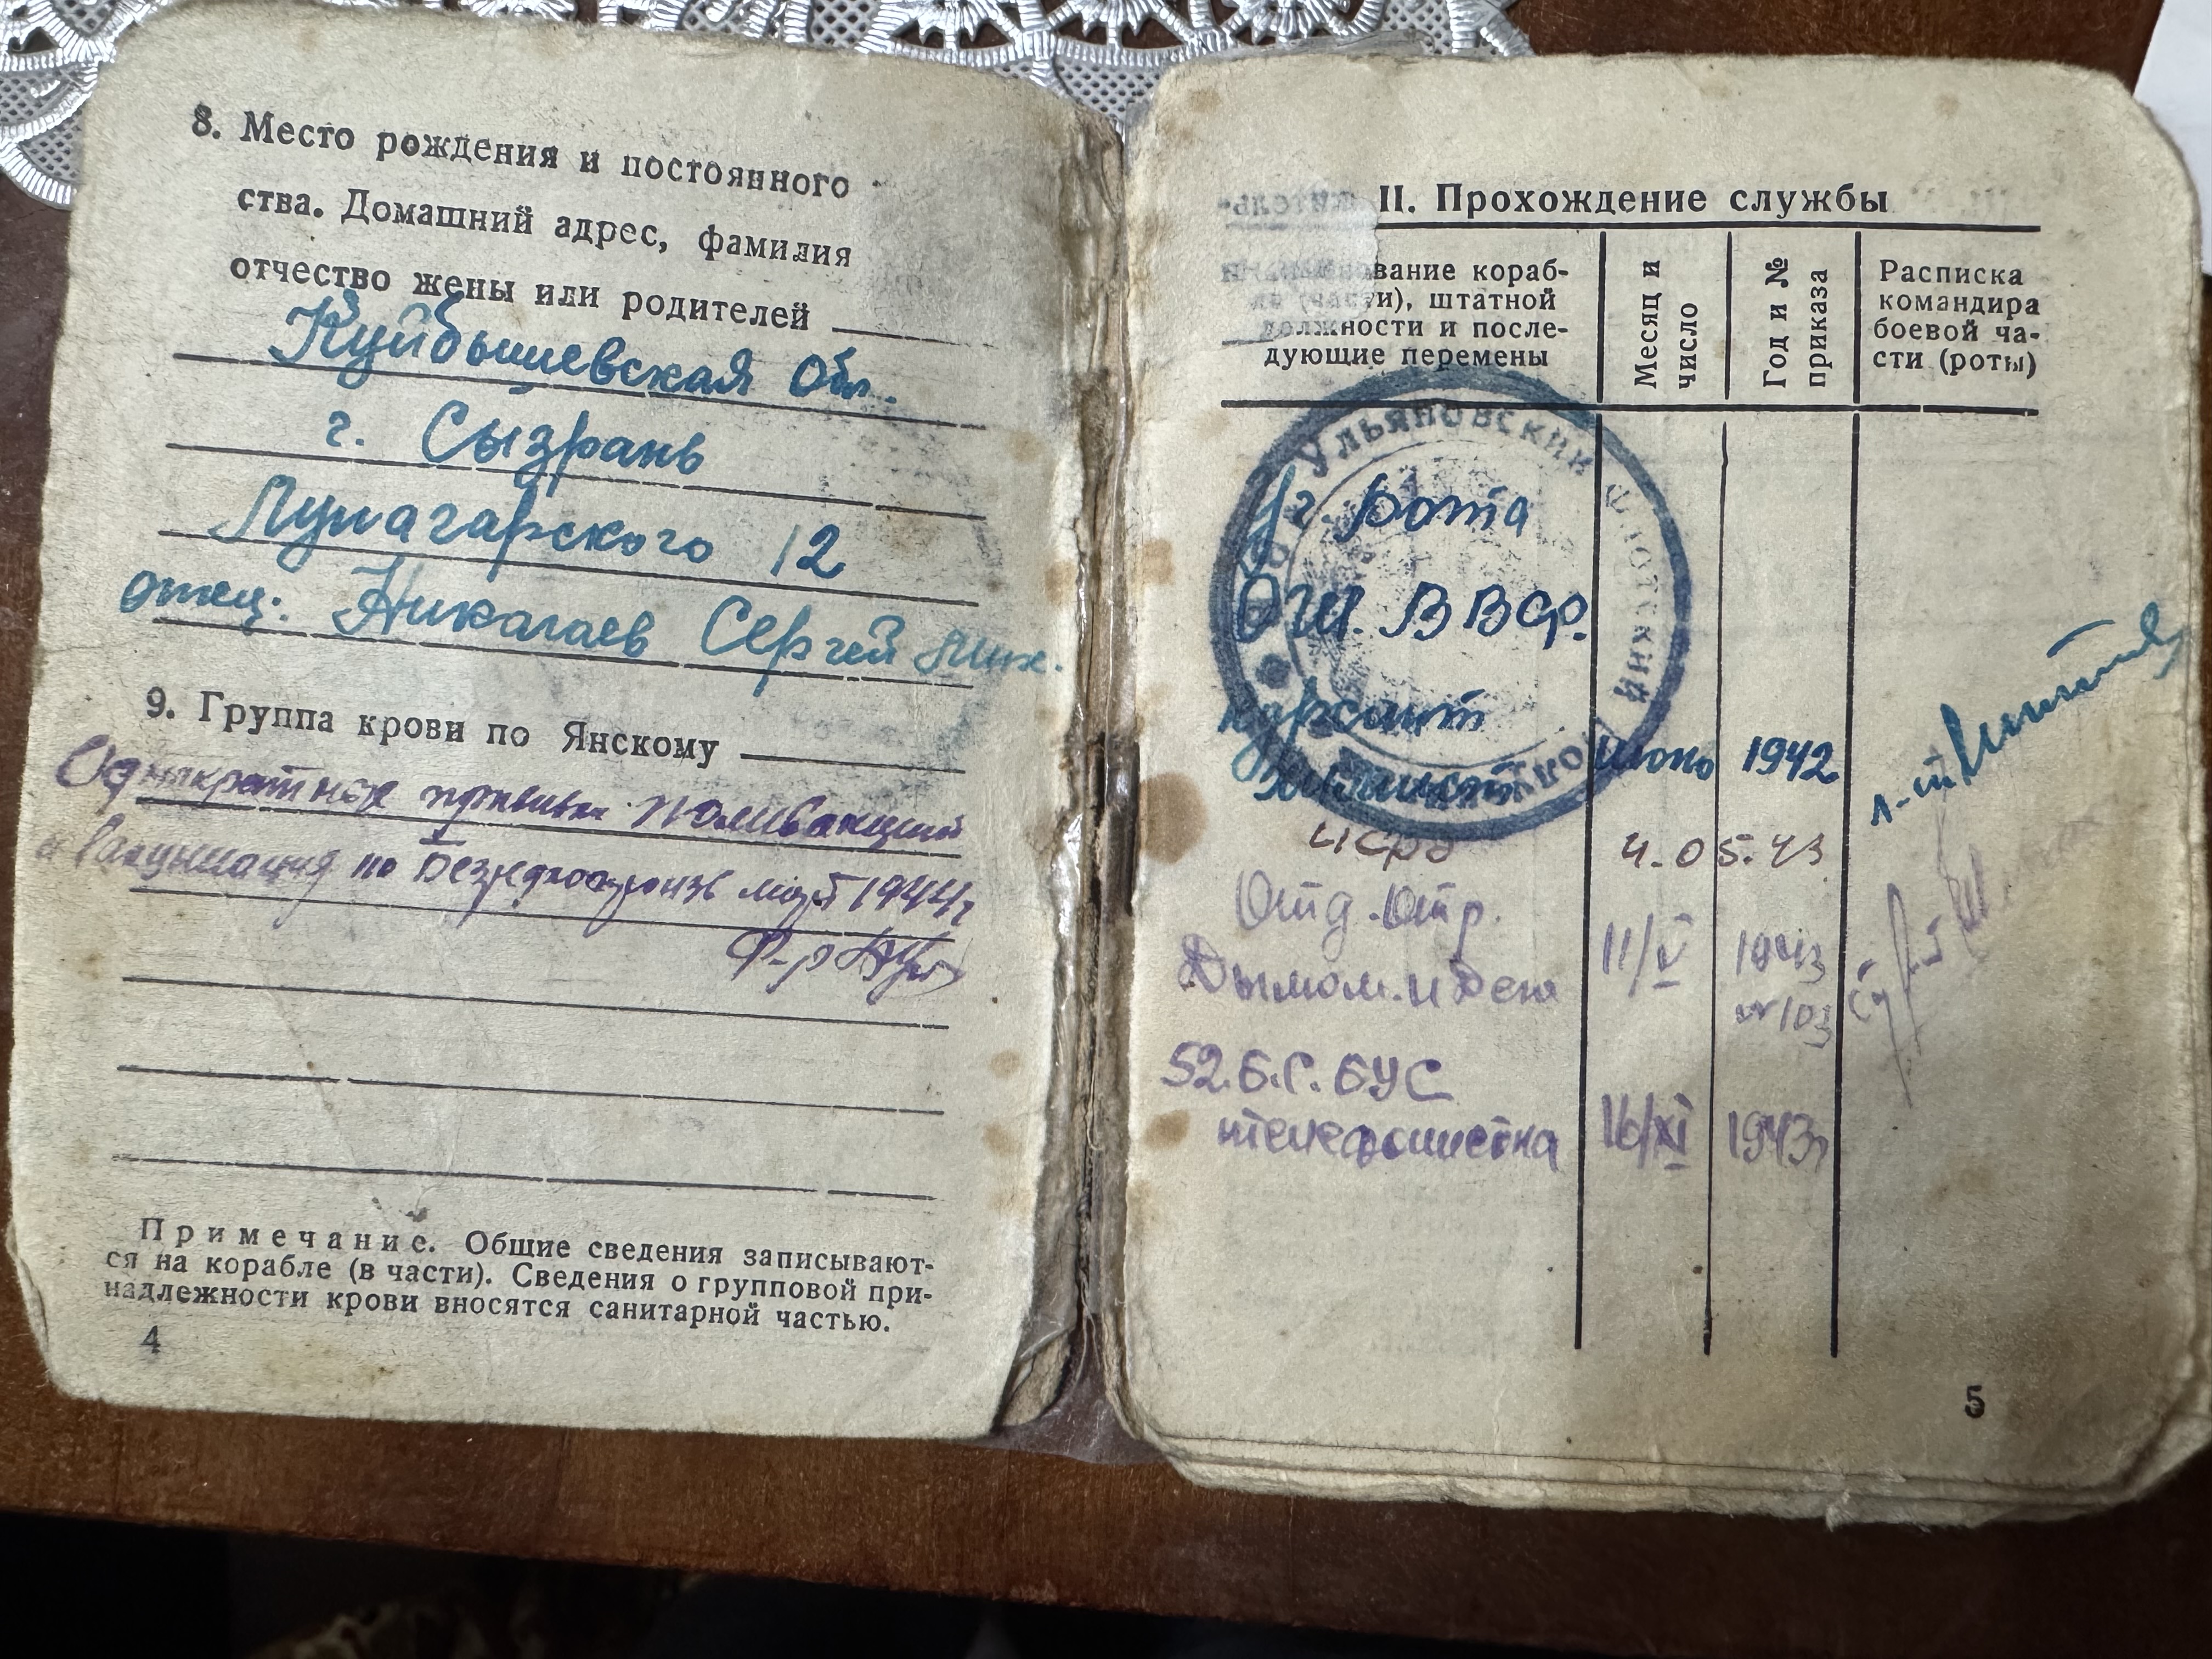 8. Место рождения и постоянного
ства. Домашний адрес, фамилия
отчество жены или родителей
Куйбышевская Обл.
г. Сызрань
Луначарского 12
отец: Николаев Сергей Мих.
9. Группа крови по Янскому
Однократная прививка поливакциной
май 1944г
Примечание. Общие сведения записывают-
ся на корабле (в части). Сведения о групповой при-
надлежности крови вносятся санитарной частью.
4
II. Прохождение службы
вание кораб-
ти), штатной
должности и после-
дующие перемены
Месяц и
число
Год и №
приказа
Расписка
командира
боевой ча-
сти (роты)
Ульяновский Флотский
рота
курсант
Июнь 1942
4.05.43
Отд. Отр.
Дымом. и Дег
11/V 1943
№ 103
52. Б.С. БУС
телефонистка 16/XI 1943г
5